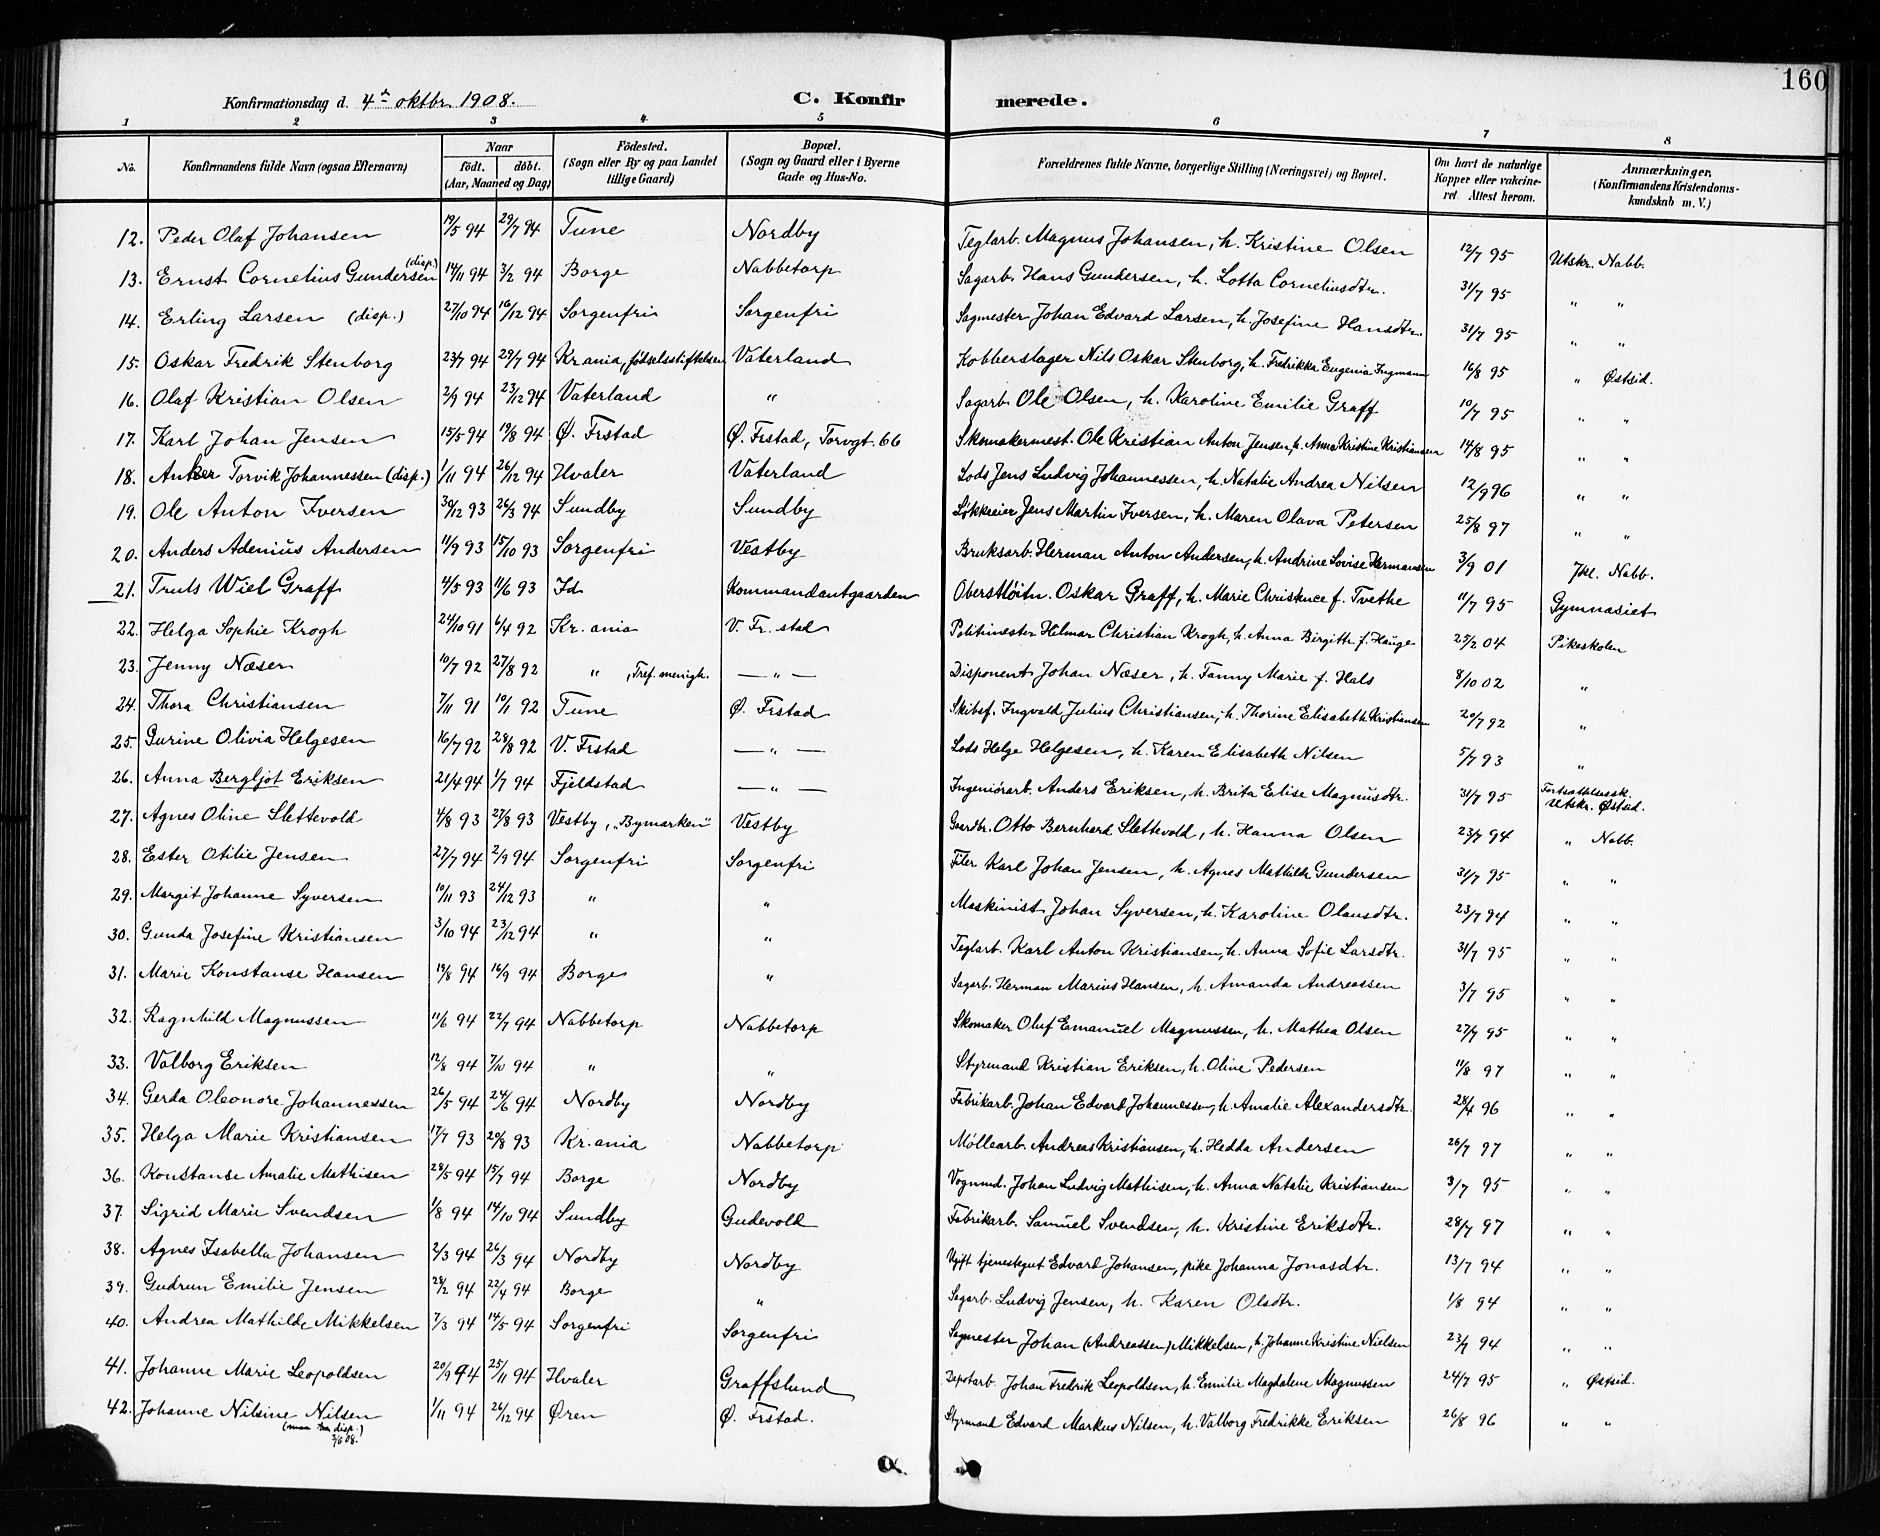 160
Konfirmationsdag d. 4de oktbr. 1908. C. Konfirmerede.
1 2 3 4 5 6 7 8
No. Konfirmandens fulde Navn (ogsaa Efternavn) Naar født. døbt. (Aar, Maaned og Dag) Födested. (Sogn eller By og paa Landet tillige Gaard) Bopæl. (Sogn og Gaard eller i Byerne Gade og Hus-No. Forældrenes fulde Navne, borgerlige Stilling (Næringsvei) og Bopæl. Om havt de naturlige Kopper eller vakcineret. Attest herom. Anmærkninger. (Konfirmandens Kristendomskundskab m. V.)
12. Peder Olaf Johansen 19/5 94 29/7 94 Tune Nordby Teglarb. Magnus Johansen, h. Kristine Olsen 12/7 95 Utskr. Nabb.
13. Ernst Cornelius Gundersen (disp.) 14/11 94 3/2 94 Borge Nabbetorp Sagarb. Hans Gundersen, h. Lotta Corneliusdtr. 31/7 95 " "
14. Erling Larsen (disp.) 27/10 94 16/12 94 Sorgenfri Sorgenfri Sagmester Johan Edvard Larsen, h. Josefine Hansdtr. 31/7 95 " "
15. Oskar Fredrik Stenborg 23/7 94 29/7 94 Kr.ania, fødselsstiftelsen Vaterland Kobberslager Nils Oskar Stenborg, h. Fredrikke Eugenia Ingmann 16/8 95 " Østsid.
16. Olaf Kristian Olsen 2/9 94 23/12 94 Vaterland " Sagarb. Ole Olsen, h. Karoline Emilie Graff 10/7 95 " "
17. Karl Johan Jensen 15/5 94 19/8 94 Ø. Frstad Ø. Frstad, Torvgt. 66 Skomakermest. Ole Kristian Anton Jensen, h. Anna Kristine Kristiansen 14/8 95 " "
18. Anker Torvik Johannessen (disp.) 1/11 94 26/12 94 Hvaler Vaterland Lods Jens Ludvig Johannessen, h. Natalie Andrea Nilsen 12/9 96 " "
19. Ole Anton Iversen 30/12 93 26/3 94 Sundby Sundby Løkkeeier Jens Martin Iversen, h. Maren Olava Petersen 25/8 97 " "
20. Anders Adenius Andersen 11/9 93 15/10 93 Sorgenfri Vestby Bruksarb. Herman Anton Andersen, h. Andrine Lovise Hermansen 3/9 01 Ikl. Nabb.
21. Truls Wiel Graff 4/5 93 11/6 93 Id Kommandantgaarden Oberstløitn. Oskar Graff, h. Marie Christence f. Tvethe 11/7 95 Gymnasiet
22. Helga Sophie Krogh 24/10 91 6/4 92 Kr.ania V. Fr.stad Politimester Hilmar Christian Krogh, h. Anna Birgitte f. Hauge 25/2 04 Pikeskolen
23. Jenny Næser 10/7 92 27/8 92 " , Tref. menigh. — " — Disponent Johan Næser, h. Fanny Marie f. Hals 8/10 02 "
24. Thora Christiansen 7/11 91 10/1 92 Tune Ø. Frstad Skibsf. Ingvald Julius Christiansen, h. Thorine Elisabeth Kristiansen 20/7 92 "
25. Gurine Olivia Helgesen 16/7 92 28/8 92 V. Frstad — " — Lods Helge Helgesen, h. Karen Elisabeth Nilsen 5/7 93 "
26. Anna Bergljot Eriksen 21/4 94 1/7 94 Fjeldstad — " — Ingeniörarb. Anders Eriksen, h. Brita Elise Magnusdtr. 31/7 95 Fortsættelsessk. Utskr. Østsid.
27. Agnes Oline Slettevold 4/8 93 27/8 93 Vestby, "Bymarken" Vestby Gaardbr. Otto Bernhard Slettevold, h. Hanna Olsen 23/7 94 " Nabb.
28. Ester Otilie Jensen 27/7 94 2/9 94 Sorgenfri Sorgenfri Filer Karl Johan Jensen, h. Agnes Mathilde Gundersen 31/7 95 " "
29. Margit Johanne Syversen 10/11 93 24/12 93 " " Maskinist Johan Syversen, h. Karoline Olausdtr. 23/7 94 " "
30. Gunda Josefine Kristiansen 3/10 94 23/12 94 " " Teglarb. Karl Anton Kristiansen, h. Anna Sofie Larsdtr. 31/7 95 " "
31. Marie Konstanse Hansen 19/8 94 16/9 94 Borge " Sagarb. Herman Marius Hansen, h. Amanda Andreassen 3/7 95 " "
32. Ragnhild Magnussen 11/6 94 22/7 94 Nabbetorp Nabbetorp Skomaker Oluf Emanuel Magnussen, h. Mathea Olsen 27/7 95 " "
33. Valborg Eriksen 12/8 94 7/10 94 " " Styrmand Kristian Eriksen, h. Oline Pedersen 11/8 97 " "
34. Gerda Oleonore Johannessen 26/5 94 24/6 94 Nordby Nordby Fabrikarb. Johan Edvard Johannessen, h. Amalie Alexandersdtr. 28/4 96 " "
35. Helga Marie Kristiansen 17/7 93 20/8 93 Kr.ania Nabbetorp Møllearb. Andreas Kristiansen, h. Hedda Andersen 26/7 97 " "
36. Konstanse Amalie Mathisen 28/5 94 15/7 94 Borge Nordby Vognmd. Johan Ludvig Mathisen, h. Anna Natalie Kristiansen 3/7 95 " "
37. Sigrid Marie Svendsen 1/8 94 14/10 94 Sundby Gudevold Fabrikarb. Samuel Svendsen, h. Kristine Eriksdtr. 28/7 97 " "
38. Agnes Isabella Johansen 2/3 94 26/3 94 Nordby Nordby Ugift tjenestegut Edvard Johansen, pike Johanna Jonasdtr. 13/7 94 " "
39. Gudrun Emilie Jensen 28/2 94 22/4 94 Borge " Sagarb. Ludvig Jensen, h. Karen Olsdtr. 1/8 94 " "
40. Andrea Mathilde Mikkelsen 7/3 94 14/5 94 Sorgenfri Sorgenfri Sagmester Johan (Andreassen) Mikkelsen, h. Johanne Kristine Nielsen 23/7 94 " "
41. Johanne Marie Leopoldsen 20/9 94 25/11 94 Hvaler Graffslund Depotarb. Johan Fredrik Leopoldsen, h. Emilie Magdalene Magnussen 24/7 95 " Østsid.
42. Johanne Nilsine Nilsen 1/11 94 26/12 94 Øren Ø. Frstad. Styrmand Edvard Markus Nilsen, h. Valborg Fredrikke Eriksen 26/8 96 " "
disp.) 3/6 08.